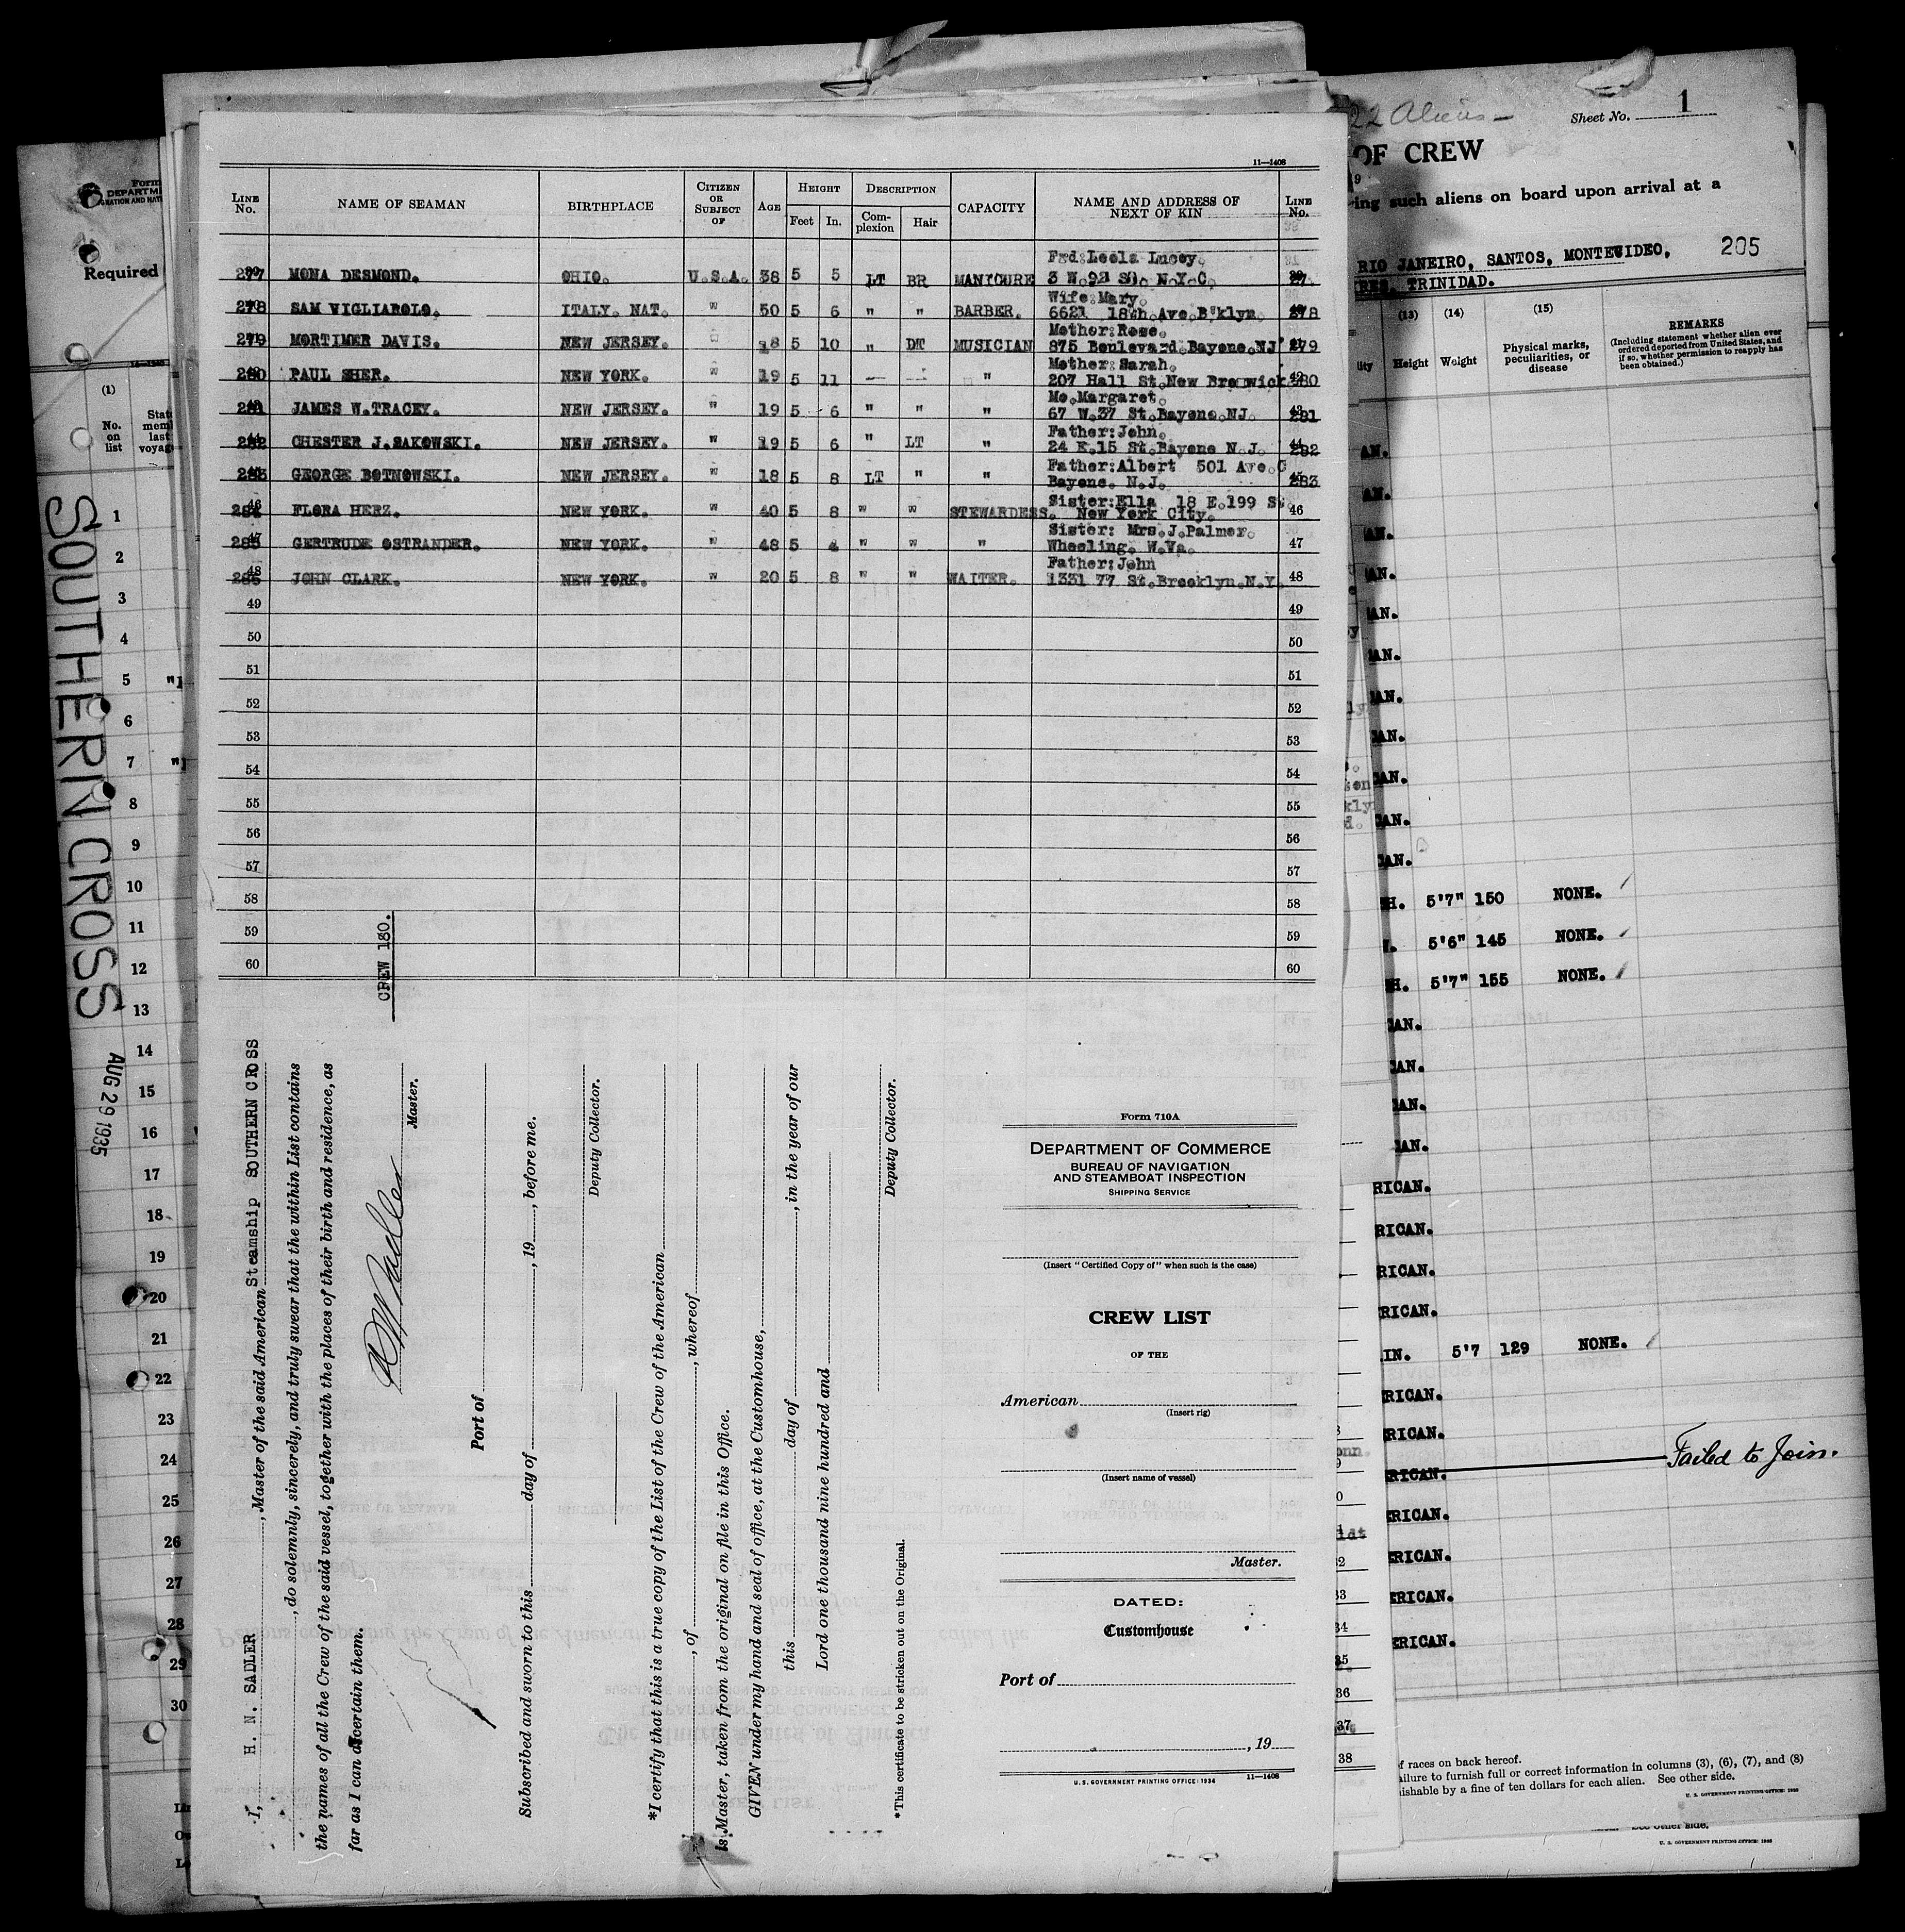 11—1408
LINE No. NAME OF SEAMAN BIRTHPLACE CITIZEN OR SUBJECT OF AGE HEIGHT Feet In. DESCRIPTION Complexion Hair CAPACITY NAME AND ADDRESS OF NEXT OF KIN LINE No.
Frd:Leela Lucey.
277 MONA DESMOND. OHIO. U.S.A. 38 5 5 LT BR MANICURE 3 W.92 St. N.Y.C.
Wife:Mary.
278 SAM VIGLIAROLO. ITALY. NAT. " 50 5 6 " " BARBER. 6621 18th.Ave.B'klyn. 278
Mother:Rose.
279 MORTIMER DAVIS. NEW JERSEY. " 18 5 10 " DT MUSICIAN 875 Boulevard.Bayone.NJ' 279
Mother:Sarah.
280 PAUL SHER. NEW YORK. " 19 5 11 — — " 207 Hall St.New Brouwick 280
Mo.Margaret.
281 JAMES W.TRACEY. NEW JERSEY. " 19 5 6 " " " 67 W.37 St.Bayone.NJ. 281
Father:John.
282 CHESTER J.SAKOWSKI. NEW JERSEY. " 19 5 6 " LT " 24 E.15 St.Bayone N.J. 282
Father:Albert 501 Ave.C
283 GEORGE BOTNOWSKI. NEW JERSEY. " 18 5 8 LT " " Bayone. N.J. 283
Sister:Ella 18 E.199 St.
284 FLORA HERZ. NEW YORK. " 40 5 8 " " STEWARDESS. New York City. 46
Sister: Mrs.J.Palmer.
285 GERTRUDE OSTRANDER. NEW YORK. " 48 5 4 " " " Wheeling. W.Va. 47
Father:John
286 JOHN CLARK. NEW YORK. " 20 5 8 " " WAITER. 1331 77 St.Brooklyn.N.Y. 48
49 49
50 50
51 51
52 52
53 53
54 54
55 55
56 56
57 57
58 58
59 59
60 60
CREW 180.
I, H. N. SADLER , Master of the said American Steamship SOUTHERN CROSS
, do solemnly, sincerely, and truly swear that the within List contains
the names of all the Crew of the said vessel, together with the places of their birth and residence, as
far as I can ascertain them.
Master.
Port of
Subscribed and sworn to this day of , 19 , before me.
Deputy Collector.
*I certify that this is a true copy of the List of the Crew of the American
, of , whereof
is Master, taken from the original on file in this Office.
GIVEN under my hand and seal of office, at the Customhouse,
this day of , in the year of our
Lord one thousand nine hundred and
Deputy Collector.
*This certificate to be stricken out on the Original.
Form 710A
DEPARTMENT OF COMMERCE
BUREAU OF NAVIGATION
AND STEAMBOAT INSPECTION
SHIPPING SERVICE
(Insert "Certified Copy of" when such is the case)
CREW LIST
OF THE
American
(Insert rig)
(Insert name of vessel)
Master.
DATED:
Customhouse
Port of
, 19
U. S. GOVERNMENT PRINTING OFFICE: 1934 11—1408
Form
DEPARTM
Required
(1)
No. on list
1
2
3
4
5
6
7
8
9
10
11
12
13
14
15
16
17
18
19
20
21
22
23
24
25
26
27
28
29
30
SOUTHERN CROSS
AUG 29 1935
22 Aliens —
Sheet No. 1
OF CREW
such aliens on board upon arrival at a
RIO JANEIRO, SANTOS, MONTEVIDEO, 205
TRINIDAD.
(13) (14) (15)
Height Weight Physical marks, peculiarities, or disease
REMARKS
(Including statement whether alien ever ordered deported from United States, and if so, whether permission to reapply has been obtained.)
H. 5'7" 150 NONE.
5'6" 145 NONE.
H. 5'7" 155 NONE.
RICAN.
RICAN.
RICAN.
RICAN.
IN. 5'7 129 NONE.
RICAN.
RICAN.
RICAN. Failed to Join.
RICAN.
RICAN.
RICAN.
RICAN.
36
37
38
f races on back hereof.
ailure to furnish full or correct information in columns (3), (6), (7), and (8)
ishable by a fine of ten dollars for each alien. See other side.